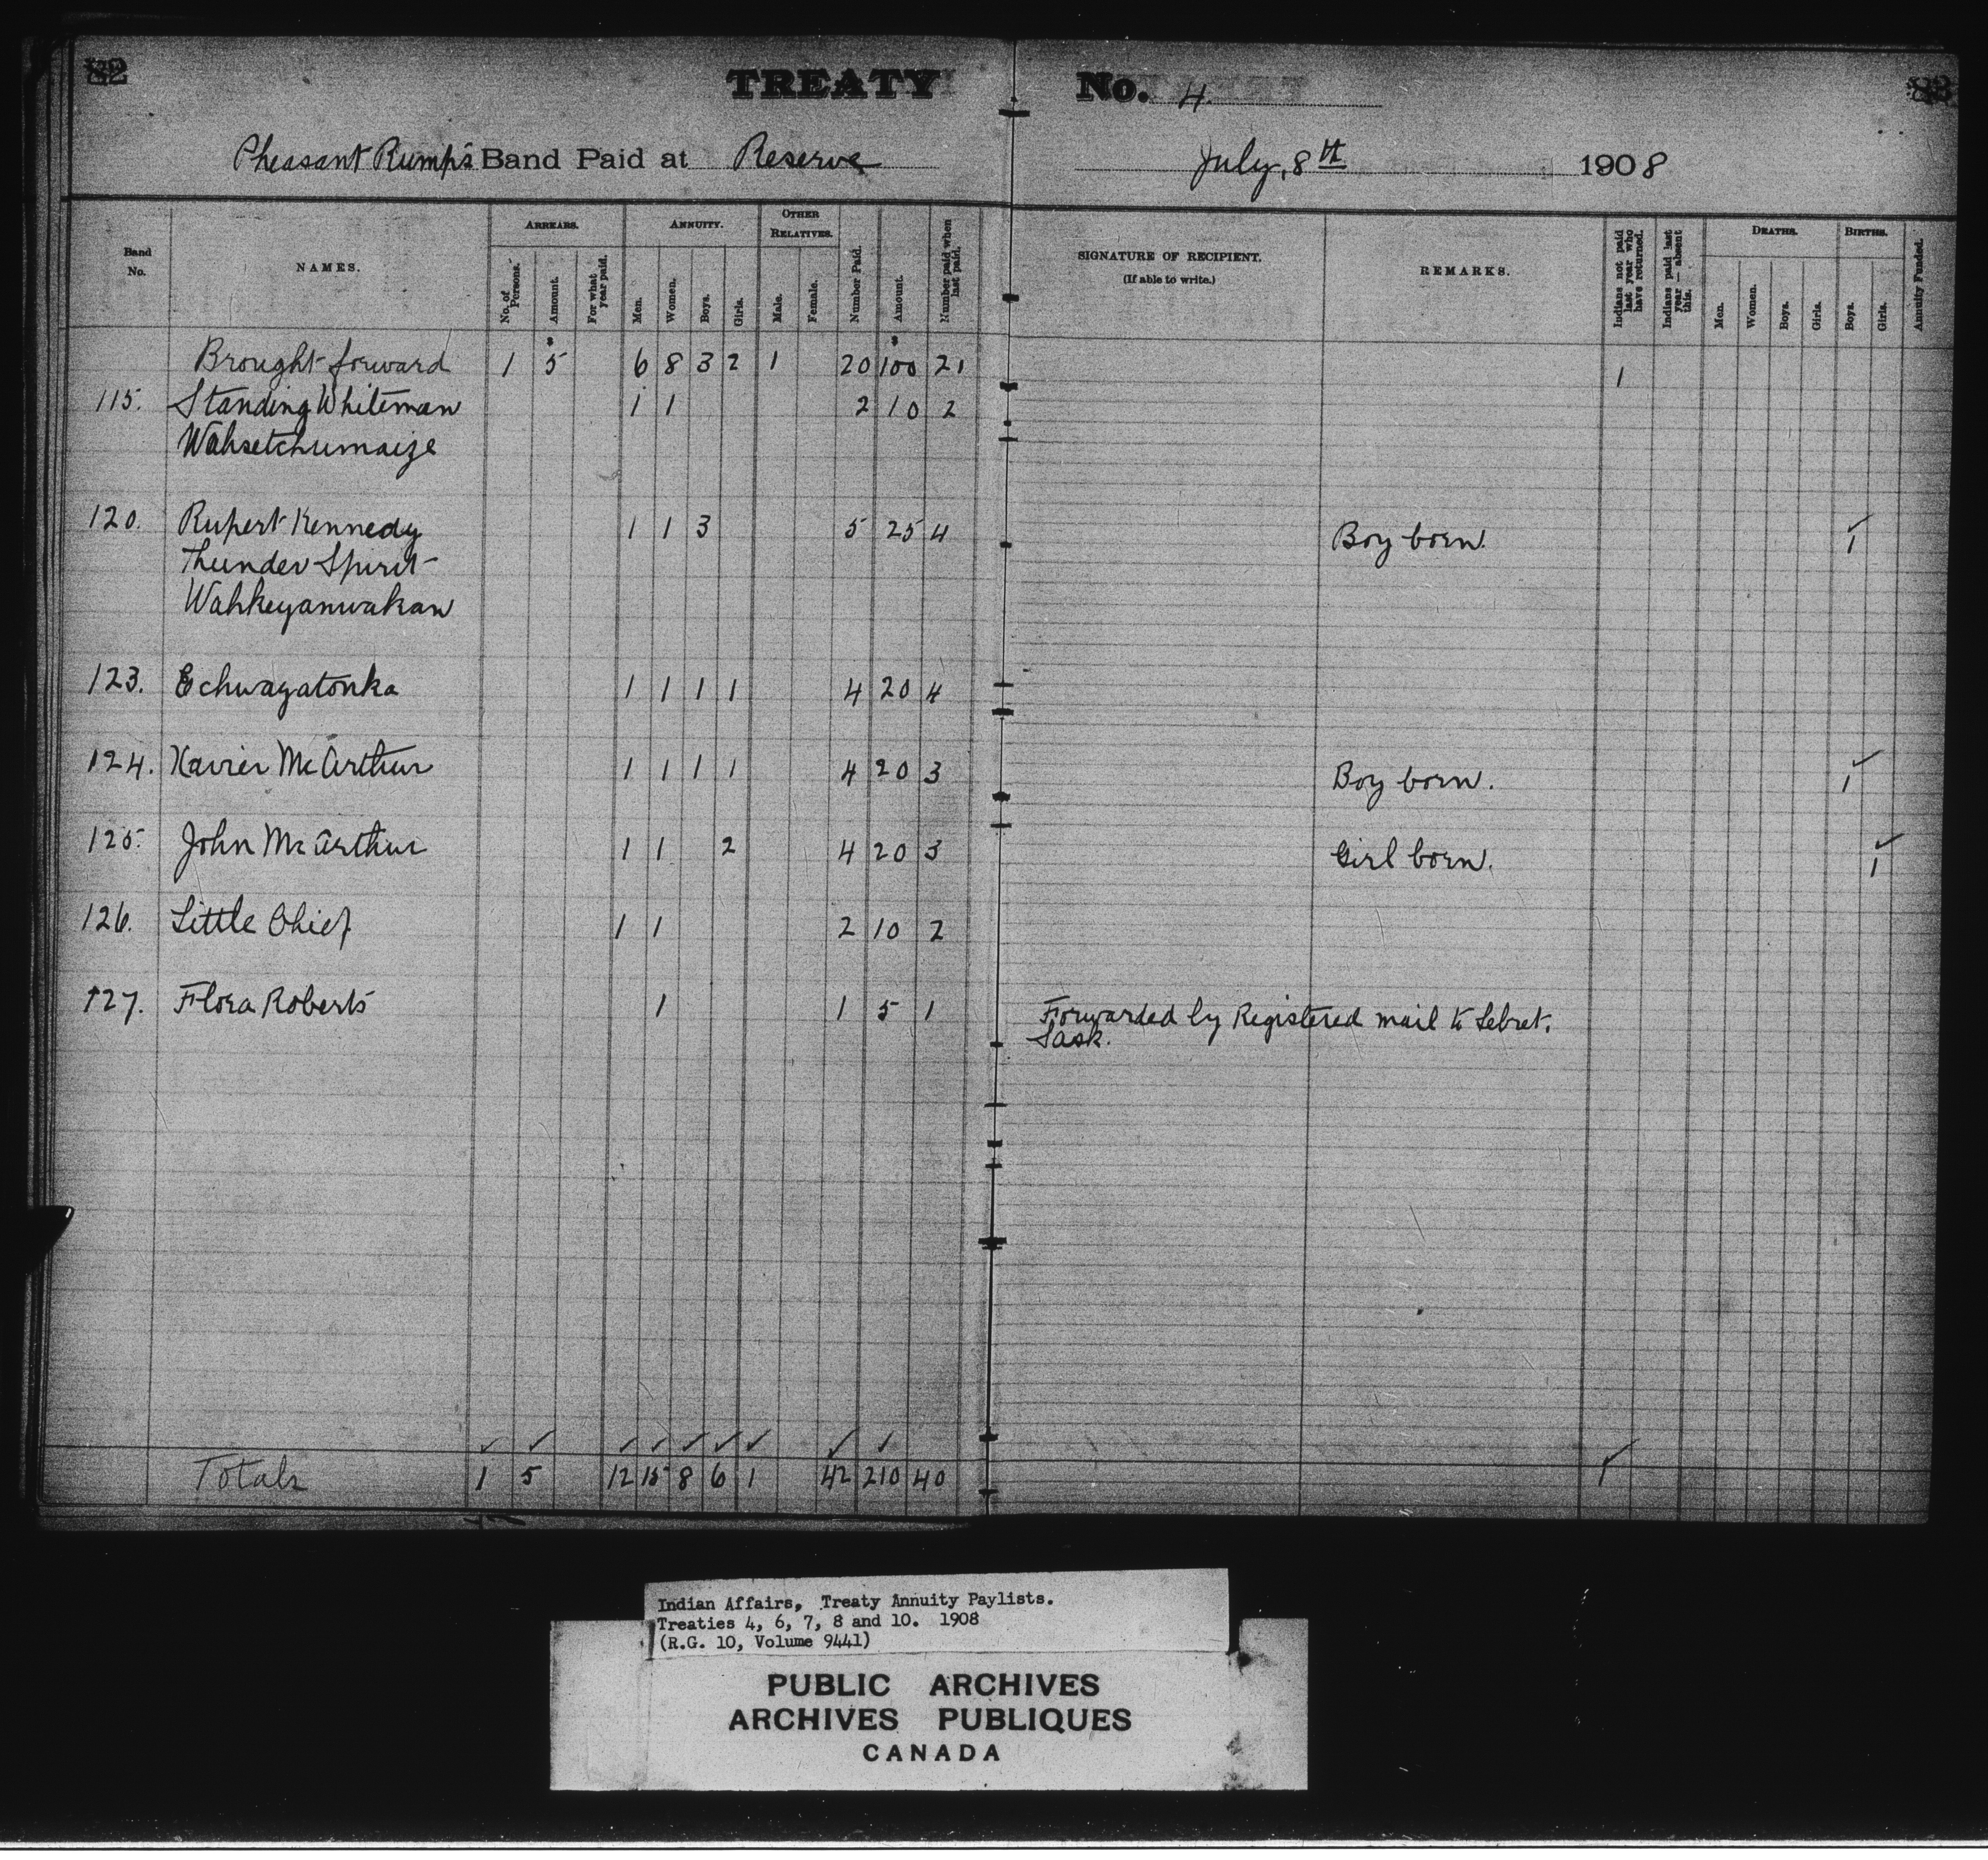 82
TREATY No. 4.
83
Pheasant Rump's Band Paid at Reserve July, 8th 1908
Band No.
NAMES.
ARREARS.
No. of Persons.
Amount.
For what year paid.
ANNUITY.
Men.
Women.
Boys.
Girls.
OTHER RELATIVES.
Male.
Female.
Number Paid.
Amount.
Number paid when last paid.
SIGNATURE OF RECIPIENT.
(If able to write.)
REMARKS.
Indians not paid last year who have returned.
Indians paid last year absent this.
DEATHS.
Men.
Women.
Boys.
Girls.
BIRTHS.
Boys.
Girls.
Annuity Funded.
Brought forward 1 $5 6 8 3 2 1 20 $100 21 1
115. Standing Whiteman 1 1 2 10 2
Wahsetchumaize
120. Rupert Kennedy 1 1 3 5 25 4 Boy born. 1
Thunder Spirit
Wahkeyanwakan
123. Echwagatonka 1 1 1 1 4 20 4
124. Xavier McArthur 1 1 1 1 4 20 3 Boy born. 1
125. John McArthur 1 1 2 4 20 3 Girl born. 1
126. Little Chief 1 1 2 10 2
127. Flora Roberts 1 1 5 1 Forwarded by Registered mail to Lebret.
Sask.
Totals 1 5 12 15 8 6 1 42 210 40 1
Indian Affairs, Treaty Annuity Paylists.
Treaties 4, 6, 7, 8 and 10. 1908
(R.G. 10, Volume 9441)
PUBLIC ARCHIVES
ARCHIVES PUBLIQUES
CANADA